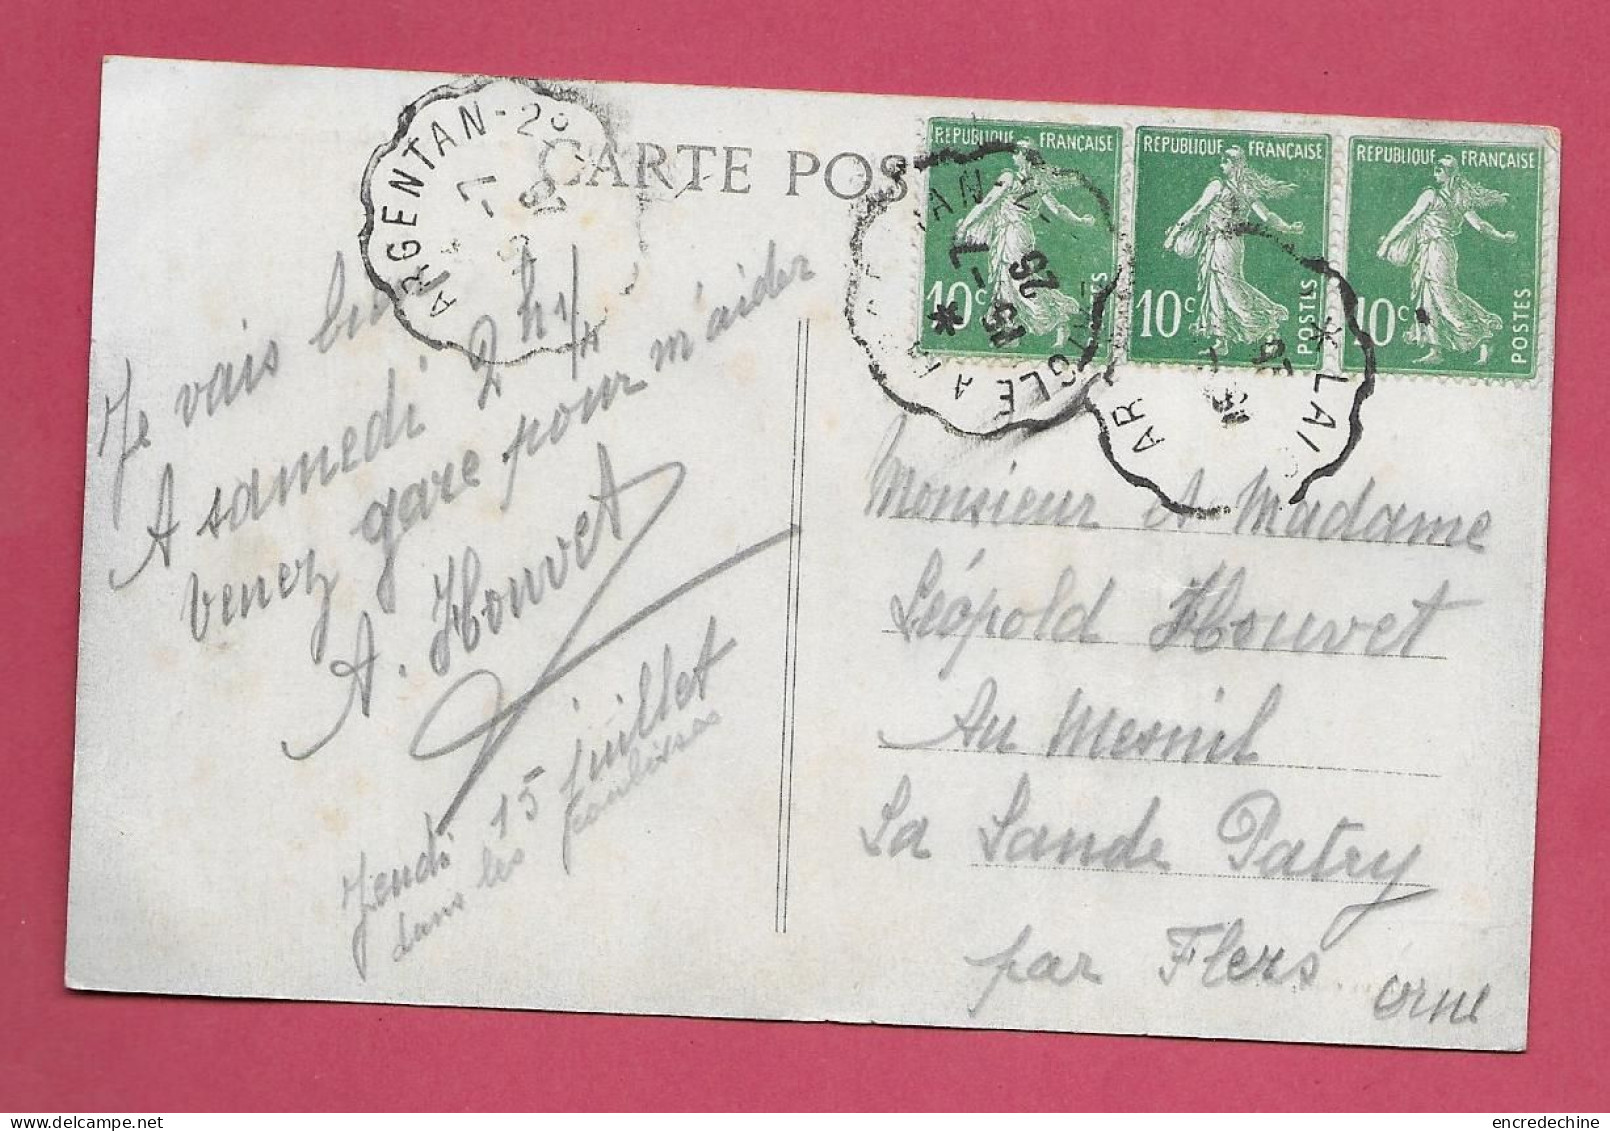 CARTE POS
ARGENTAN - 2°
REPUBLIQUE FRANÇAISE
10c
POSTES
REPUBLIQUE FRANÇAISE
10c
POSTES
REPUBLIQUE FRANÇAISE
10c
POSTES
15 - 7
26
Je vais bu
A samedi 2 h 1/4
venez gare pour m'aider
A. Houvet
Jeudi 15 juillet
dans les
Monsieur et Madame
Léopold Houvet
Au Mesnil
La Lande Patry
par Flers
orne
encredechine